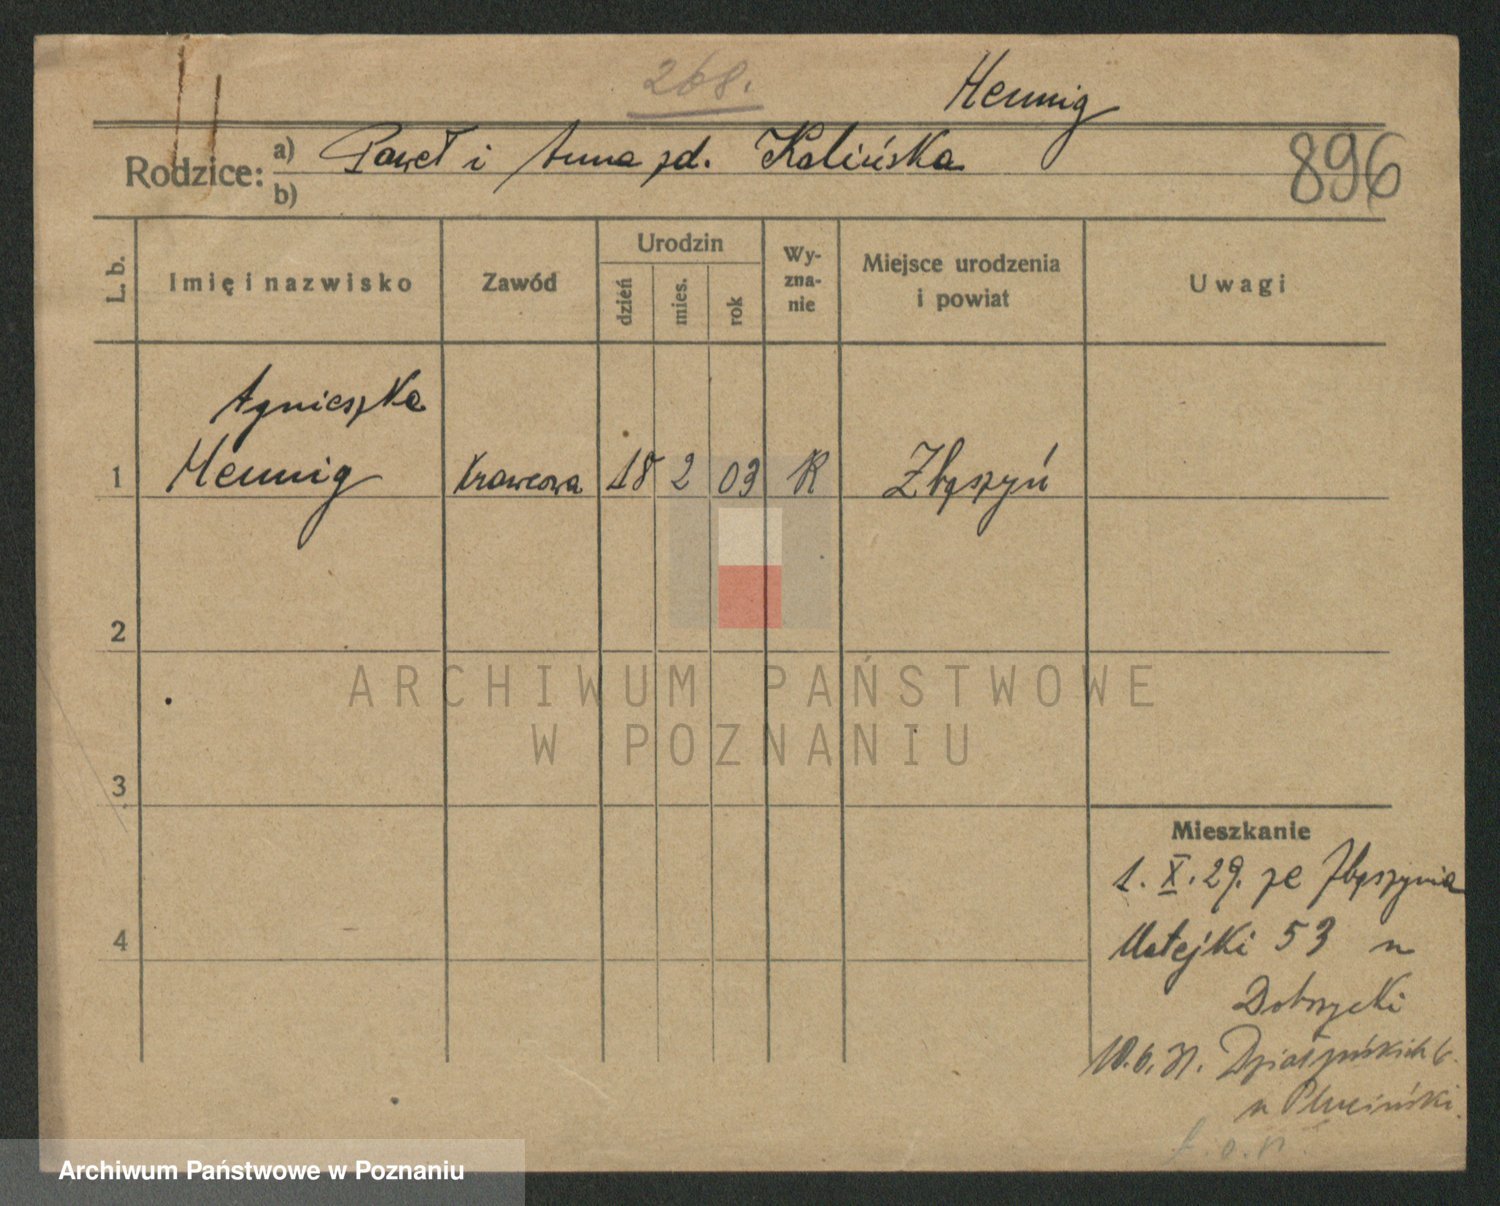 268.
Hennig
Rodzice:
a) Paweł i Anna zd. Kalińska
b)
896
L. b.
Imię i nazwisko
Zawód
Urodzin
dzień
mies.
rok
Wy-
zna-
nie
Miejsce urodzenia
i powiat
Uwagi
Agnieszka
1 Hennig Krawcowa 18 2 03 R Zbąszyń
2
3
4
ARCHIWUM PAŃSTWOWE
W POZNANIU
Mieszkanie
1. X. 29. ze Zbąszynia
Matejki 53 u
Dobrzycki
10.6.31. Działyńskich 6.
u Pluciński.
Archiwum Państwowe w Poznaniu